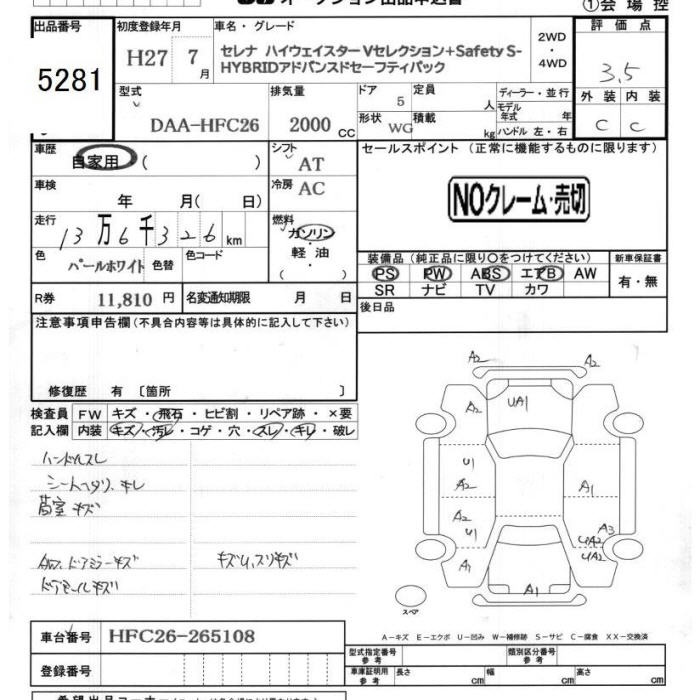 オークション出品申込書 ①会場控
出品番号 初度登録年月 車名・グレード 評価点
5281 H27 7月 セレナ ハイウェイスターVセレクション+Safety S-HYBRIDアドバンスドセーフティパック 2WD・4WD 3.5
型式 排気量 ドア 定員 ディーラー・並行 外装 内装
DAA-HFC26 2000 CC 5 人 モデル年式 年 C C
形状 WG 積載 kg ハンドル 左・右
車歴 自家用 ( ) シフト AT セールスポイント (正常に機能するものに限ります)
車検 年 月( 日) 冷房 AC NOクレーム・売切
走行 13万6千326km 燃料 ガソリン・軽油・( )
色 パールホワイト 色替 色コード 装備品 (純正品に限り○をつけてください) 新車保証書
PS PW ABS エアB AW 有・無
SR ナビ TV カワ
R券 11,810 円 名変通知期限 月 日 後日品
注意事項申告欄 (不具合内容等は具体的に記入して下さい)
修復歴 有 〔箇所 〕
検査員記入欄 FW キズ・飛石・ヒビ割・リペア跡・×要
内装 キズ・汚レ・コゲ・穴・スレ・キレ・破レ
ハンドルスレ
シートヘタリ、キレ
荷室キズ
ドアミラーキズ キズU、スリキズ
ドアモールキズ
A2 A2
A2 UA1
U1
A2 A1
A2
U1 A3
UA2
A1 UA2
A1
スペア
A−キズ E−エクボ U−凹み W−補修跡 S−サビ C−腐食 XX−交換済
車台番号 HFC26-265108 型式指定番号 参考 類別区分番号 参考
登録番号 車庫証明用 参考 長さ cm 幅 cm 高さ cm